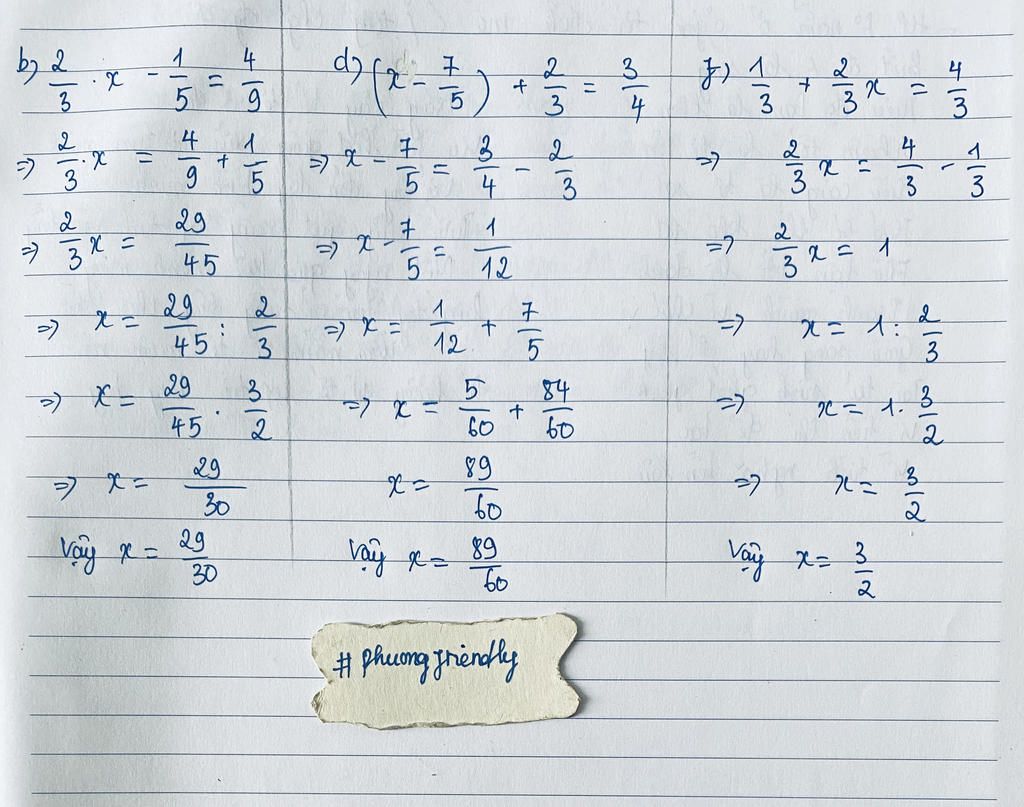 b) 2/3 . x - 1/5 = 4/9
=> 2/3 . x = 4/9 + 1/5
=> 2/3 x = 29/45
=> x = 29/45 : 2/3
=> x = 29/45 . 3/2
=> x = 29/30
Vậy x = 29/30
d) (x - 7/5) + 2/3 = 3/4
=> x - 7/5 = 3/4 - 2/3
=> x - 7/5 = 1/12
=> x = 1/12 + 7/5
=> x = 5/60 + 84/60
x = 89/60
Vậy x = 89/60
f) 1/3 + 2/3 x = 4/3
=> 2/3 x = 4/3 - 1/3
=> 2/3 x = 1
=> x = 1 : 2/3
=> x = 1 . 3/2
=> x = 3/2
Vậy x = 3/2
# phuongfriendly